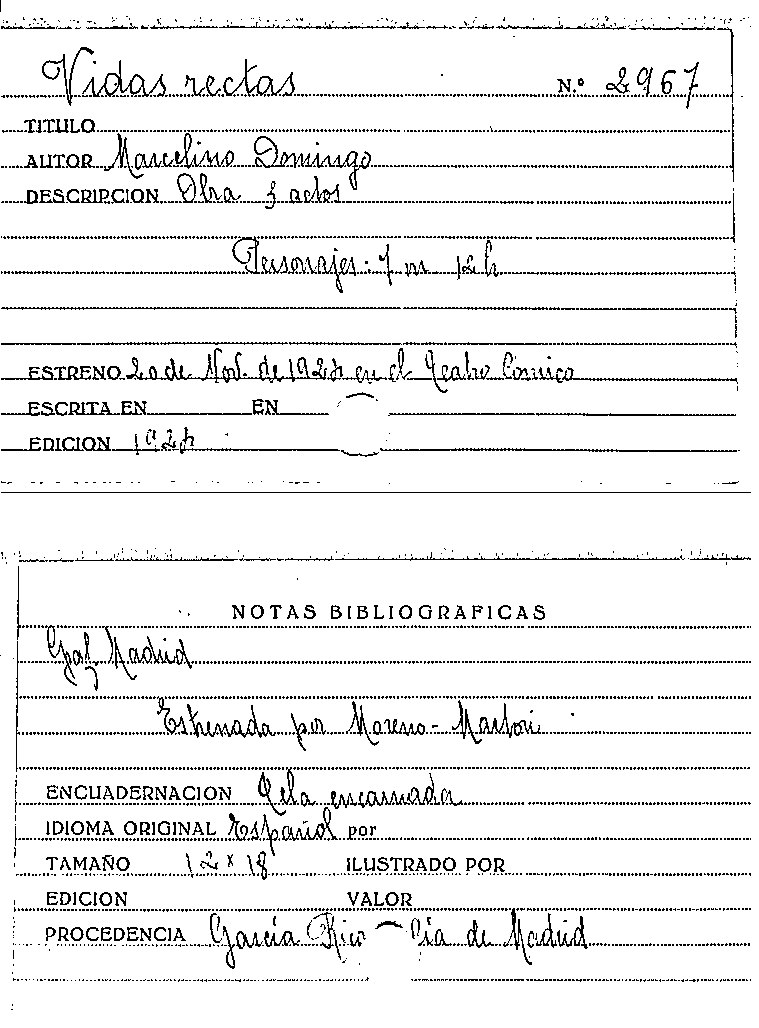 Vidas rectas N.º 2967
TITULO
AUTOR Marcelino Domingo
DESCRIPCION Obra 3 actos
Personajes: 7 m 12 h
ESTRENO 20 de Nov. de 1924 en el Teatro Cómico
ESCRITA EN EN
EDICION 1924
NOTAS BIBLIOGRAFICAS
Madrid
Estrenada por Moreno-Martori
ENCUADERNACION Tela encarnada
IDIOMA ORIGINAL Español por
TAMAÑO 12 x 18 ILUSTRADO POR
EDICION VALOR
PROCEDENCIA García Rico - Cía de Madrid